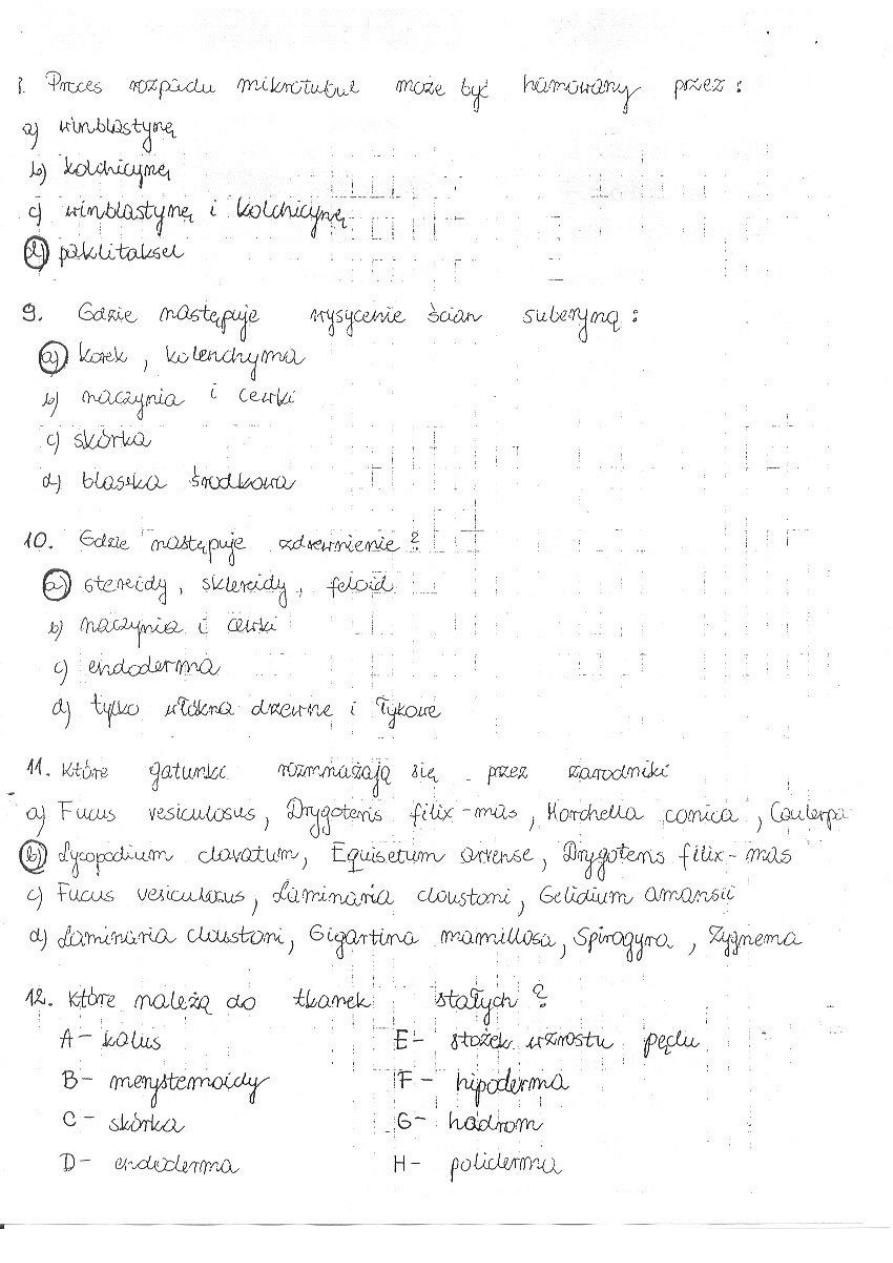 8. Proces rozpadu mikrotubul może być hamowany przez :
a) winblastynę
b) kolchicynę
c) winblastynę i kolchicynę
d) paklitaksel
9. Gdzie następuje wysycenie ścian suberyną :
a) korek , kolenchyma
b) naczynia i cewki
c) skórka
d) blaszka środkowa
10. Gdzie następuje zdrewnienie ?
a) stereidy , sklereidy , feloid
b) naczynia i cewki
c) endoderma
d) tylko włókna drzewne i łykowe
11. Które gatunki rozmnażają się przez zarodniki
a) Fucus vesiculosus , Drygoteris filix - mas , Morchella conica , Caulerpa
b) Lycopodium clavatum , Equisetum arvense , Drygoteris filix - mas
c) Fucus vesiculosus , Laminaria cloustoni , Gelidium amansii
d) Laminaria cloustoni , Gigartina mamillosa , Spirogyra , Zygnema
12. Które należą do tkanek stałych ?
A - kalus E - stożek wzrostu pędu
B - merystemoidy F - hipoderma
C - skórka G - hadrom
D - endoderma H - poliderma